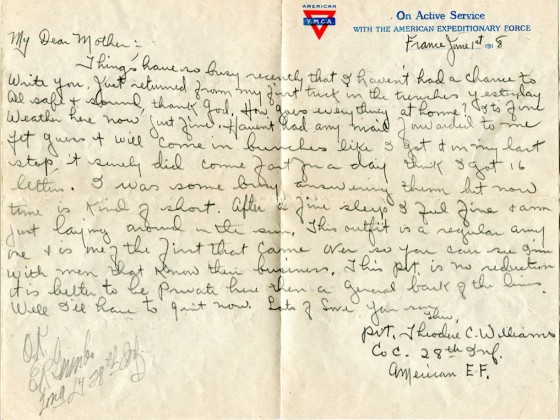 AMERICAN
Y.M.C.A.
On Active Service
WITH THE AMERICAN EXPEDITIONARY FORCE
France June 1st 1918
My Dear Mother:-
Things have so busy recently that I haven't had a chance to
Write you. Just returned from my first trick in the trenches yesterday
All safe & sound, thank God. How goes everything at home?
Weather here now just fine. Havent had any mail forwarded to me
yet guess it will come in bunches like I got it on my last
stop it surely did come fast for a day think I got 16
letters. I was some busy answering them but now
time is kind of short. After a fine sleep I feel fine & am
just laying around in the sun. This outfit is a regular army
one & is one of the first that came over so you can see I'm
with men that know their business. This pvt. is no reduction
it is better to be Private here then a general back of the lines.
Well I'll have to quit now. Lots of Love Your son,
Theo,
Pvt. Theodore C. Williams
Co C. 28th Inf.
American E.F.
OK
1st Lt 28th Inf